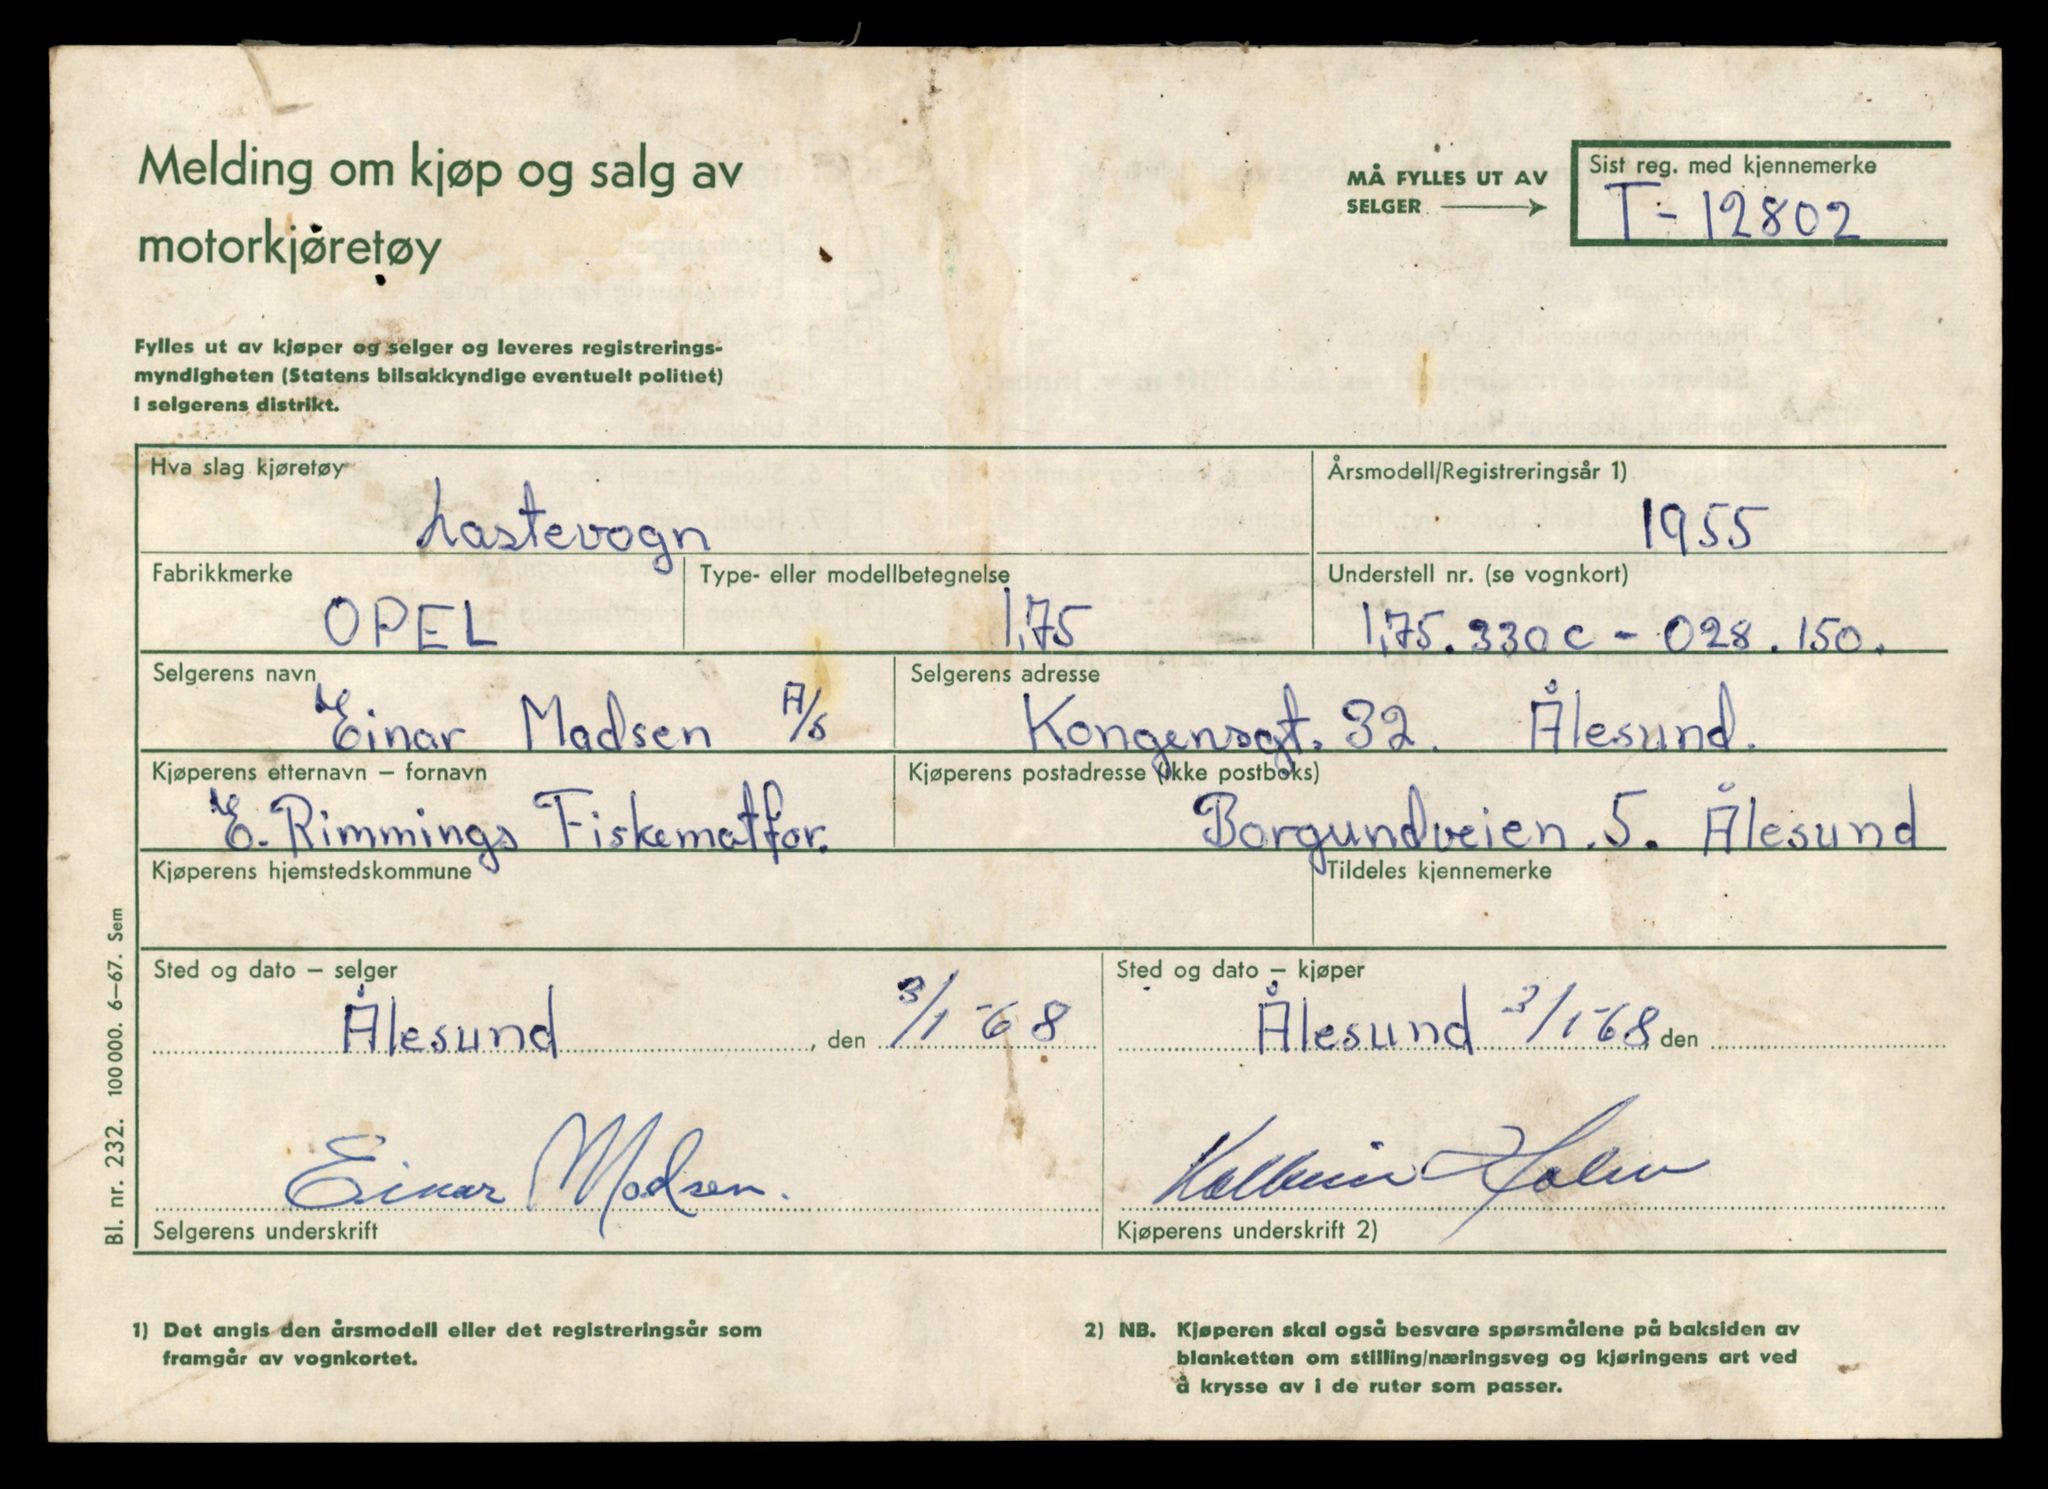 Melding om kjøp og salg av
motorkjøretøy
MÅ FYLLES UT AV
SELGER
Sist reg. med kjennemerke
T - 12802
Fylles ut av kjøper og selger og leveres registrerings-
myndigheten (Statens bilsakkyndige eventuelt politiet)
i selgerens distrikt.
Hva slag kjøretøy
Lastevogn
Årsmodell/Registreringsår 1)
1955
Fabrikkmerke
OPEL
Type- eller modellbetegnelse
1,75
Understell nr. (se vognkort)
1,75.330c - 028.150.
Selgerens navn
Einar Madsen A/S
Selgerens adresse
Kongensgt. 32. Ålesund.
Kjøperens etternavn – fornavn
E. Rimmings Fiskematfor.
Kjøperens postadresse (ikke postboks)
Borgundveien. 5. Ålesund
Kjøperens hjemstedskommune
Tildeles kjennemerke
Sted og dato – selger
Ålesund, den 3/1-68
Sted og dato – kjøper
Ålesund 3/1-68, den
Einar Madsen.
Selgerens underskrift
Kjøperens underskrift 2)
Bl. nr. 232. 100 000. 6–67. Sem
1) Det angis den årsmodell eller det registreringsår som
framgår av vognkortet.
2) NB. Kjøperen skal også besvare spørsmålene på baksiden av
blanketten om stilling/næringsveg og kjøringens art ved
å krysse av i de ruter som passer.